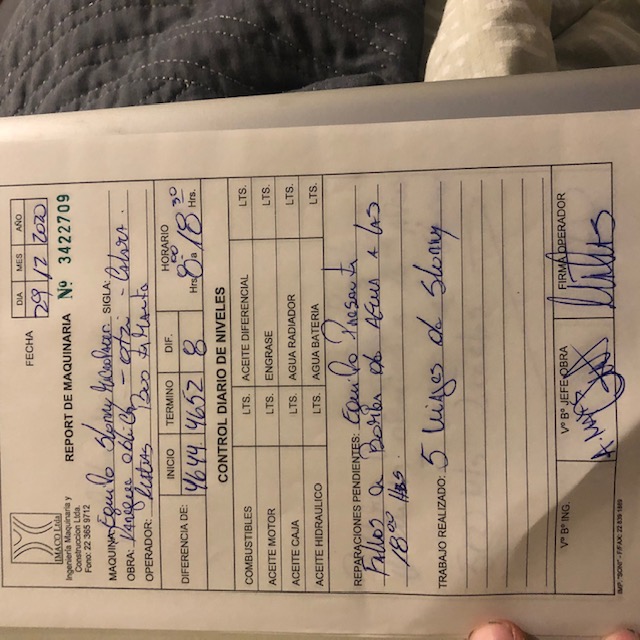 IMACO Ltda
Ingeniería Maquinaria y
Construccion Ltda.
Fono: 22 365 9712
FECHA
DIA MES AÑO
29 12 2020
REPORT DE MAQUINARIA Nº 3422709
MAQUINA: Equipo Slurry SIGLA:
OBRA: - Calera.
OPERADOR:
DIFERENCIA DE: INICIO TERMINO DIF. HORARIO
4644 4652 8 Hrs. 8:00 a 18:30 Hrs.
CONTROL DIARIO DE NIVELES
COMBUSTIBLES LTS. ACEITE DIFERENCIAL LTS.
ACEITE MOTOR LTS. ENGRASE LTS.
ACEITE CAJA LTS. AGUA RADIADOR LTS.
ACEITE HIDRAULICO LTS. AGUA BATERIA LTS.
REPARACIONES PENDIENTES: Equipo Presenta
Fallas en Bomba de Agua a las
18:00 Hrs.
TRABAJO REALIZADO: 5 Viajes de Slurry
Vº Bº ING. Vº Bº JEFE OBRA FIRMA OPERADOR
IMP. "SONI" - F/FAX: 22 839 1869